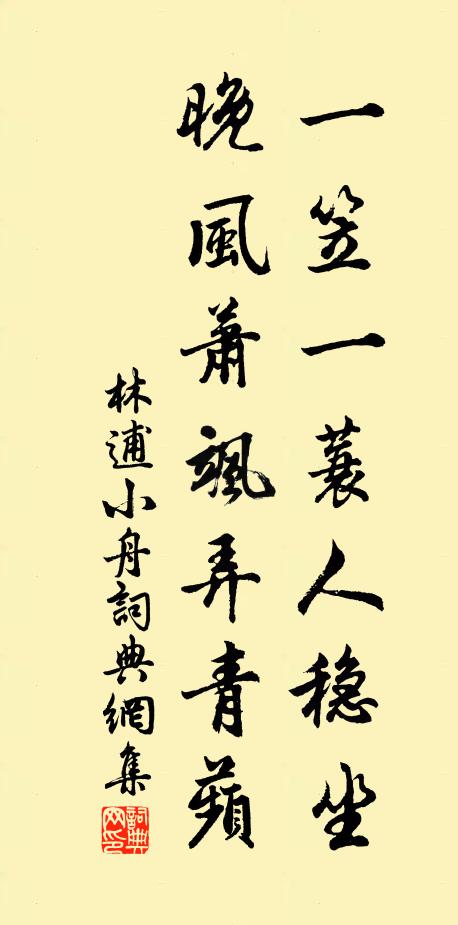 一笠一蓑人穏坐
晚風蕭颯弄青蘋
林逋小舟詞典網集
詞典
网印